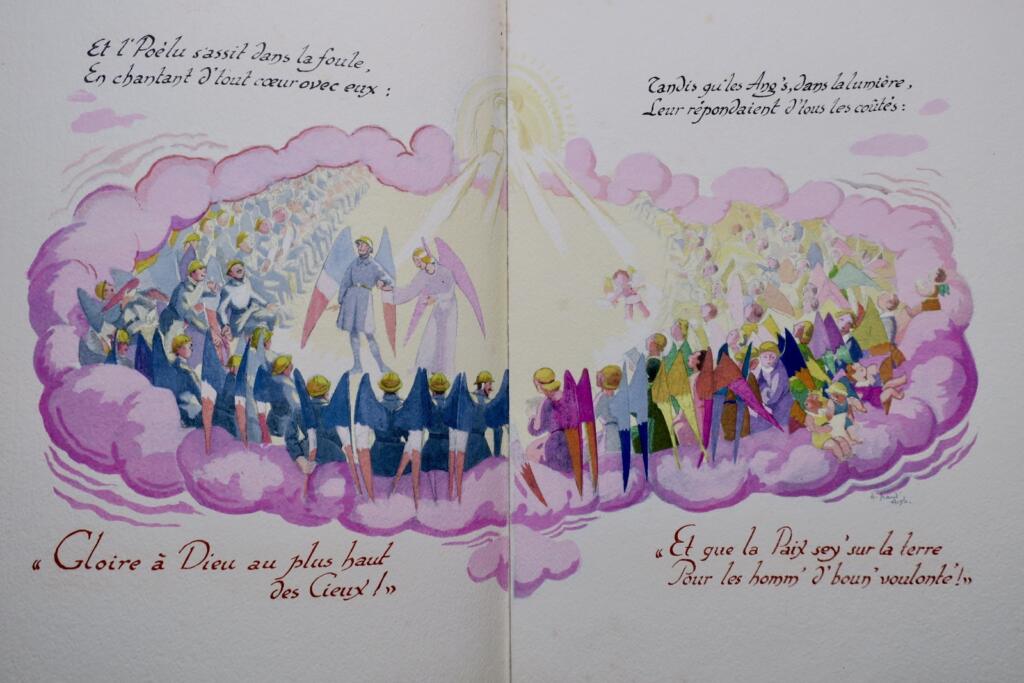 Et l'Poèlu s'assit dans la foule,
En chantant d'tout cœur avec eux :
Tandis qu'les Ang's, dans la lumière,
Leur répondaient d'tous les coûtés :
« Gloire à Dieu au plus haut
des Cieux ! »
« Et que la Paix sey' sur la terre
Pour les homm' d'boun' voulonté ! »